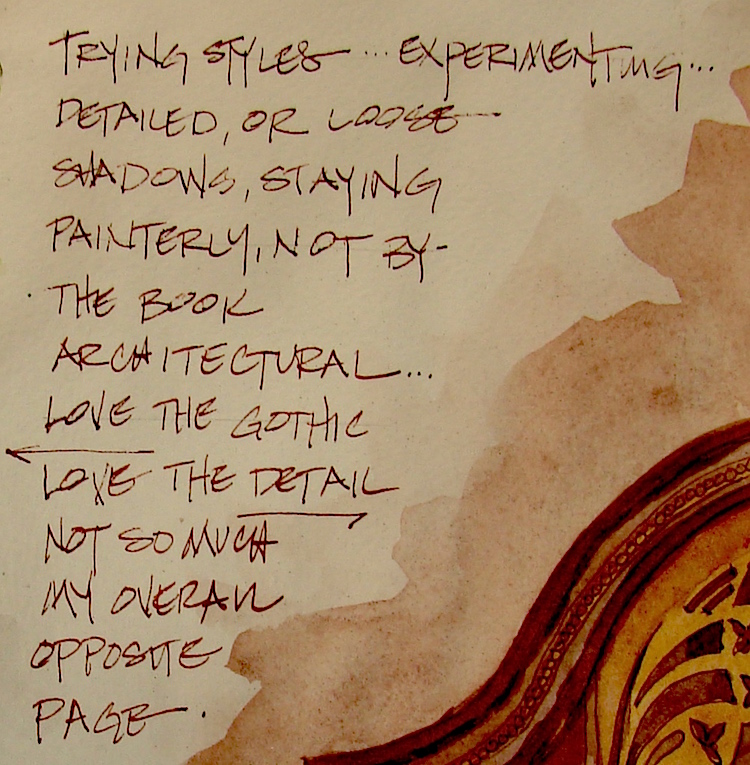 TRYING STYLES ... EXPERIMENTING...
DETAILED, OR LOOSE
SHADOWS, STAYING
PAINTERLY, NOT BY-
THE BOOK
ARCHITECTURAL...
LOVE THE GOTHIC
LOVE THE DETAIL
NOT SO MUCH
MY OVERALL
OPPOSITE
PAGE.